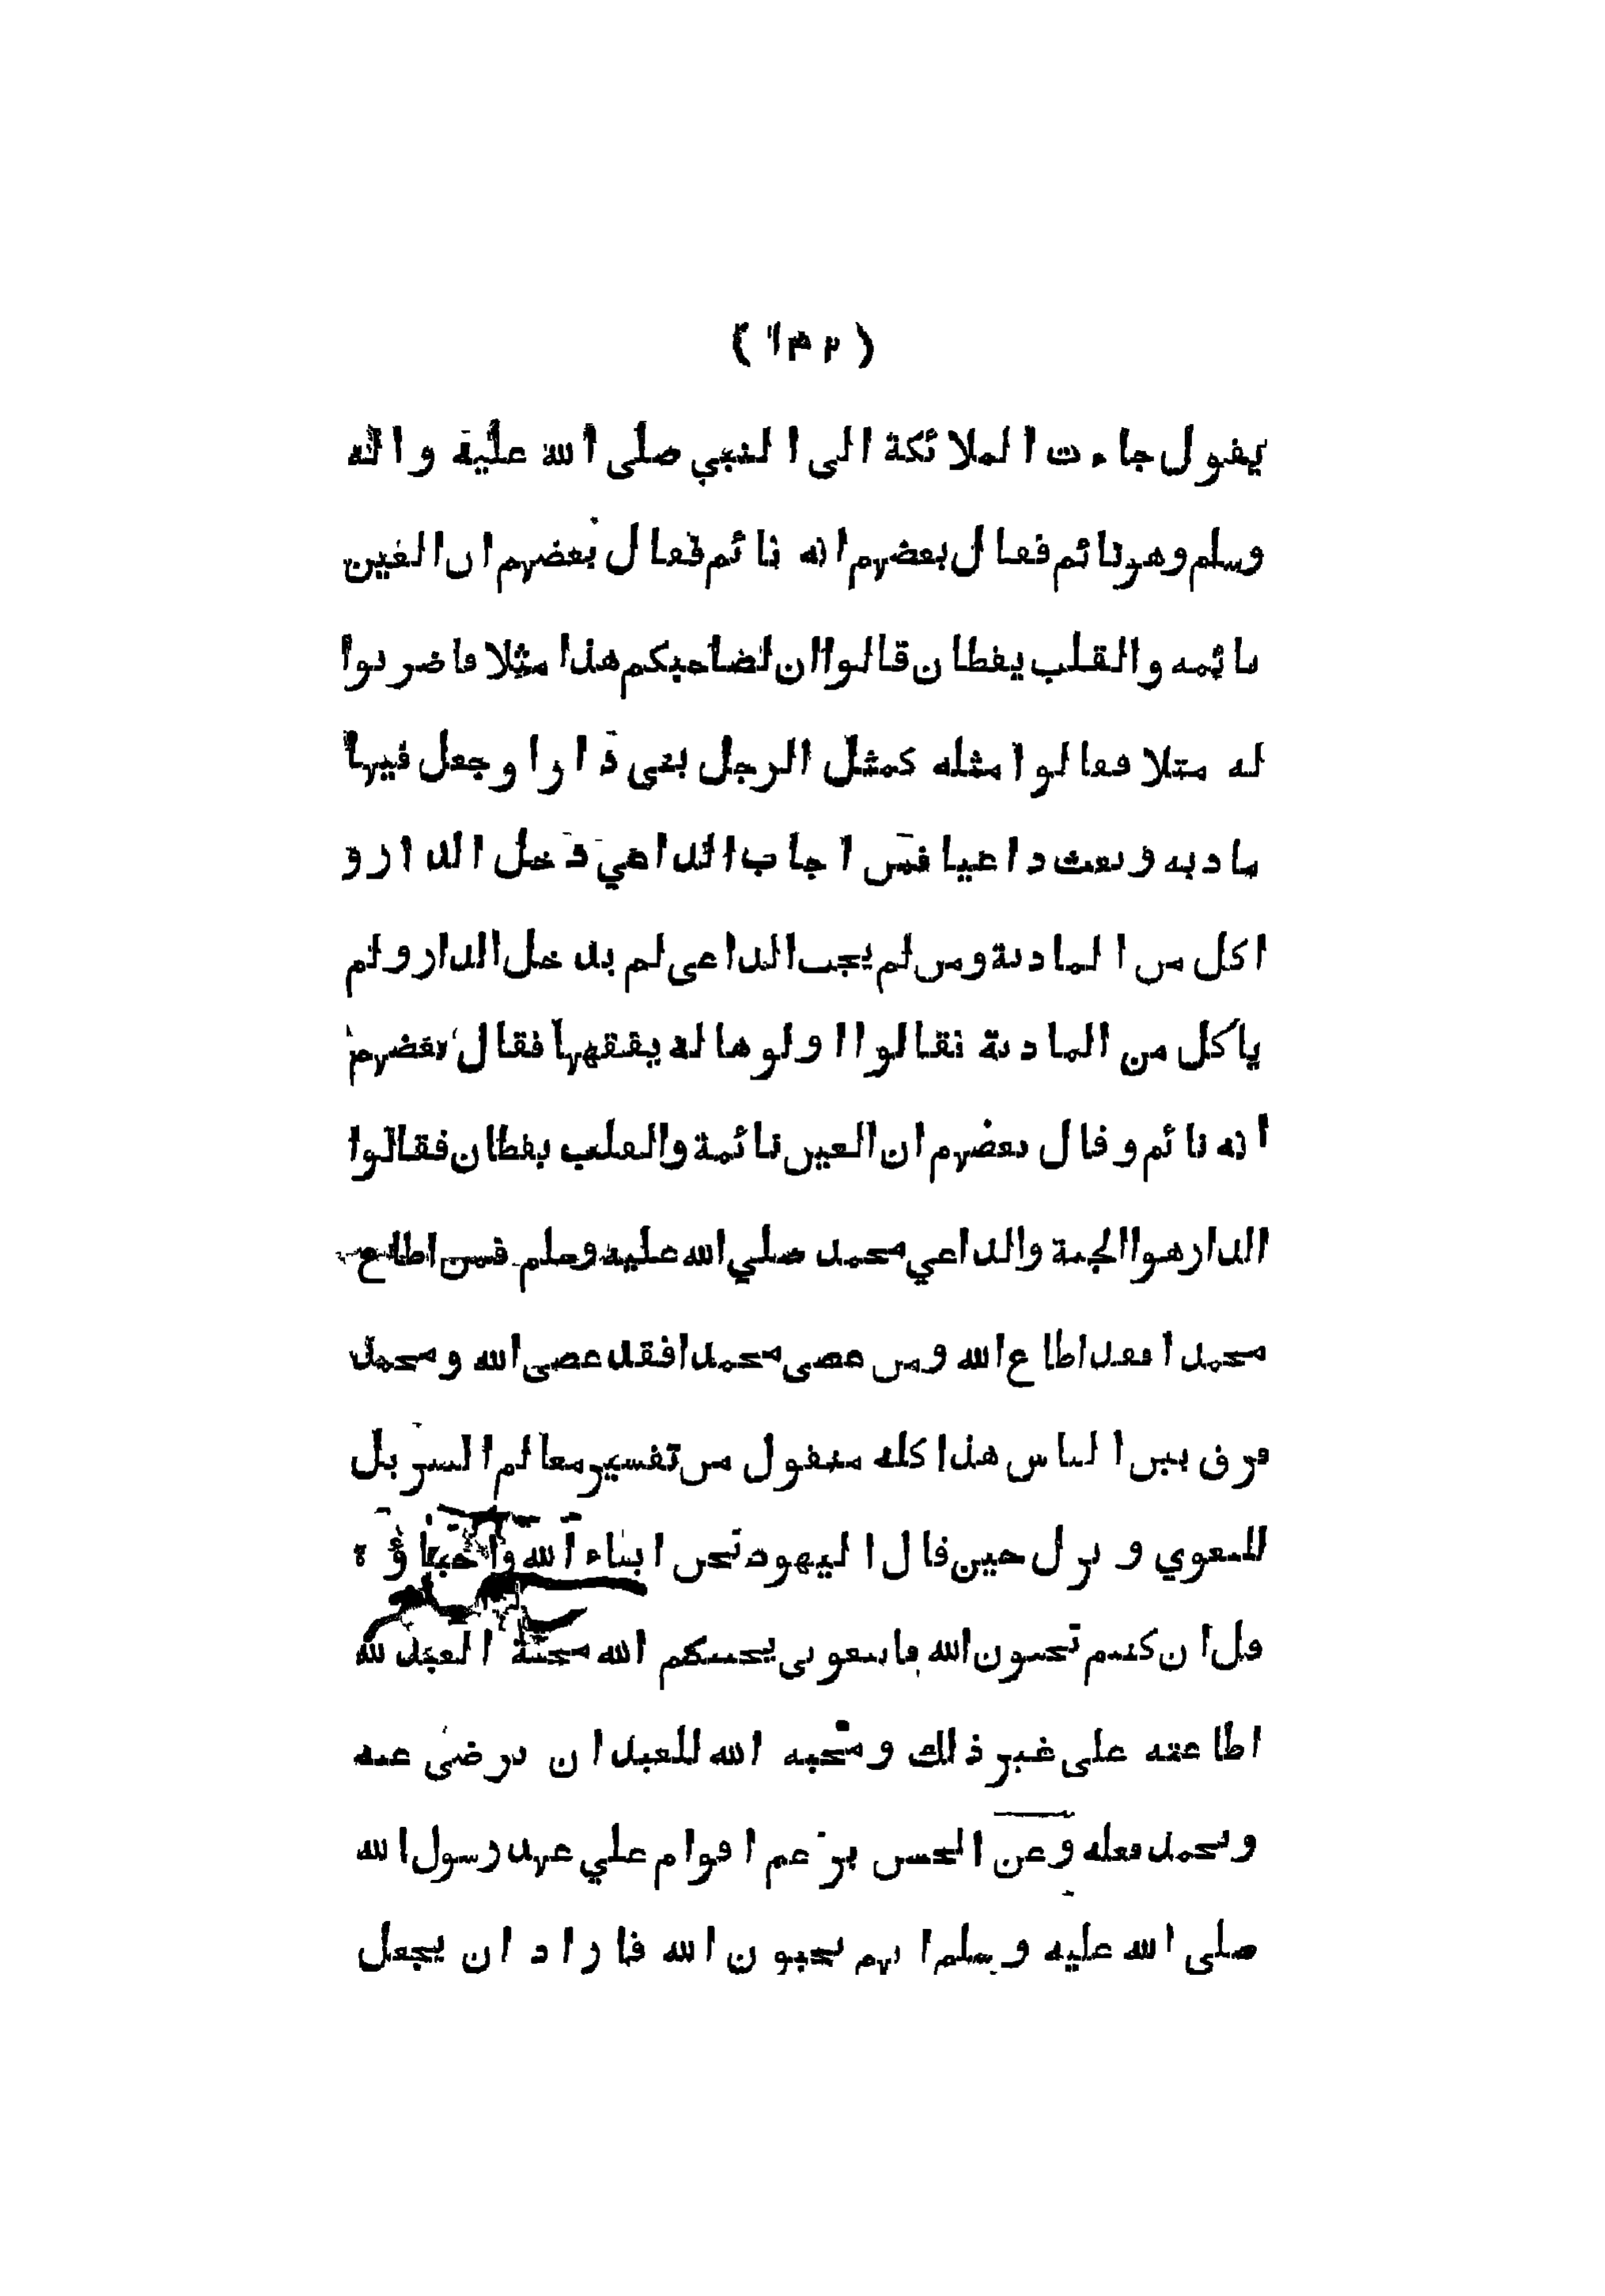 (۱۳۲)
يقول جاءت الملائكة الى النبي صلى الله عليه واله
وسلم وهو نائم فقال بعضهم انه نائم فقال بعضهم ان العين
نائمه والقلب يقظان قالوا ان لصاحبكم هذا مثلا فاضربوا
له مثلا فقالوا مثله كمثل الرجل بنى دارا وجعل فيها
مادبه وبعث داعيا فمن اجاب الداعي دخل الدار و
اكل من المادبة ومن لم يجب الداعى لم يدخل الدار ولم
ياكل من المادبة فقالوا اولوها له يفقهها فقال بعضهم
انه نائم وقال بعضهم ان العين نائمة والقلب يقظان فقالوا
الدار هوا الجنة والداعي محمد صلي الله عليه وسلم فمن اطاع
محمدا فقد اطاع الله ومن عصى محمدا فقد عصى الله ومحمد
فرق بين الناس هذا كله منقول من تفسير معالم التنزيل
للبغوي ونزل حين قال اليهود نحن ابناء الله واحباؤه
قل ان كنتم تحبون الله فاتبعونى يحببكم الله محبة العبد لله
اطاعته على غير ذلك ومحبه الله للعبد ان يرضى عنه
ويحمد فعله وعن الحسن يزعم اقوام علي عهد رسول الله
صلى الله عليه وسلم انهم يحبون الله فاراد ان يجعل